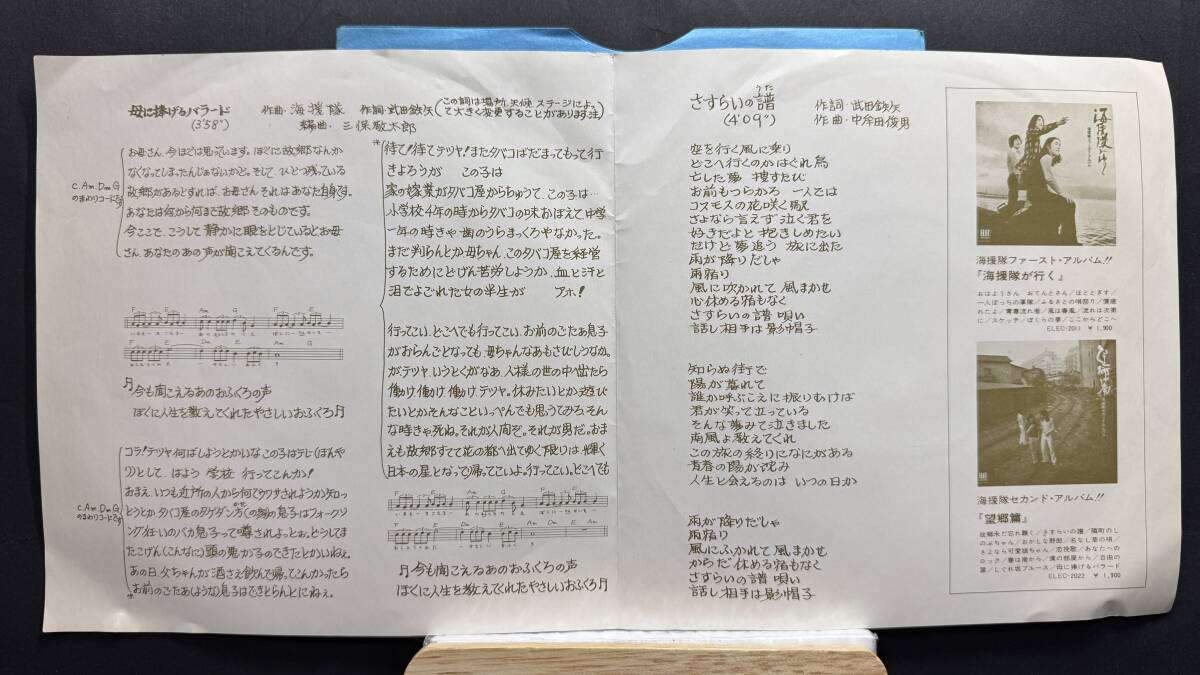 母に捧げるバラード
(3'58")
作曲・海援隊 作詞・武田鉄矢 (この詞は場所、天候、ステージによって大きく変更することがあります注)
編曲・三保敬太郎
C.Am.Dm.G
のまわりコードです
お母さん、今ぼくは思っています。ぼくに故郷なんか
なくなってしまったんじゃないかと。そして、ひとつ残っている
故郷があるとすれば、お母さんそれはあなた自身です。
あなたは何から何まで故郷そのものです。
今ここで、こうして静かに眼をとじているとお母
さん、あなたのあの声が聞こえてくるんです。
今も聞こえるあのおふくろの声
ぼくに人生を教えてくれたやさしいおふくろ
C.Am.Dm.G
のまわりコードです
コラ!テツヤ何ばしようとかいなこの子はテレ(ぼんや
り)として はよう 学校 行ってこんか!
おまえ、いつも近所の人から何てウワサされようか知っ
とうとか タバコ屋のタケダンカ(の家)の息子はフォークソ
ング狂いのバカ息子って噂されよっとぉ。どうしてま
たこげん(こんなに)頭の悪か子のできたとかいねぇ。
あの日、父ちゃんが酒さえ飲んで帰ってこんかったら
お前のごたあ(ような)息子はできとらんとにねぇ。
待て!待てテツヤ!またタバコばだまってもって行
きよろうが この子は
家の嫁業がタバコ屋からちゅうて、この子は…
小学校4年の時からタバコの味おぼえて、中学
一年の時きゃ、歯のうらまっくろやなかった。
まだ判らんとか母ちゃん、このタバコ屋を経営
するためにどげん苦労しようか、血と汗と
泪でよごれた女の半生が アホ!
行ってこい、どこへでも行ってこい。お前のごたあ息子
がおらんごとなっても、母ちゃんなあもさびしうなか。
がテツヤ、いうとくがなあ、人様の世の中出たら
働け、働け、働け、テツヤ。休みたいとか遊び
たいとかそんなこといっぺんでも思うてみろ。そん
な時きゃ死ね。それが人間ぞ。それが男だ。おま
えも故郷すてて花の都へ出てゆく限りは、輝く
日本の星となって帰ってこいよ。行ってこい。どこへでも
今も聞こえるあのおふくろの声
ぼくに人生を教えてくれたやさしいおふくろ
さすらいの譜
うた
(4'09")
作詞・武田鉄矢
作曲・中牟田俊男
空を行く風に乗り
どこへ行くのかはぐれ鳥
亡した夢 捜すたび
お前もつらかろ 一人では
コスモスの花咲く駅
さよなら言えず泣く君を
好きだよと抱きしめたい
だけど夢追う 旅に出た
雨が降りだしゃ
雨宿り
風に吹かれて 風まかせ
心休める宿もなく
さすらいの譜 唄い
話し相手は影帽子
知らぬ街で
陽が暮れて
誰か呼ぶこえに振りむけば
君が笑って立っている
そんな夢みて泣きました
南風よ教えてくれ
この旅の終りになにがある
青春の陽が沈み
人生と会えるのは いつの日か
雨が降りだしゃ
雨宿り
風にふかれて 風まかせ
からだ休める宿もなく
さすらいの譜 唄い
話し相手は影帽子
海援隊がゆく
海援隊ファースト・アルバム!!
『海援隊が行く』
おはようさん おてんとさん/ほととぎす/
一人ぼっちの軍隊/ふるさとの唄祭り/僕疲
れたよ/青春流れ者/風は春風/流れは次第
に/スケッチ/ぼくらの夢/ここからどこへ
ELEC-2011 ￥1,900
望郷篇
海援隊セカンド・アルバム!!
『望郷篇』
故郷未だ忘れ難く/さすらいの譜/隣町のし
のぶちゃん/おかしな野郎/名なし草の唄/
さよなら可愛娘ちゃん/恋挽歌/あなたへの
ロック/春は南から/僕の部屋から/自由の
扉/しぐれ坂ブルース/母に捧げるバラード
ELEC-2022 ￥1,900